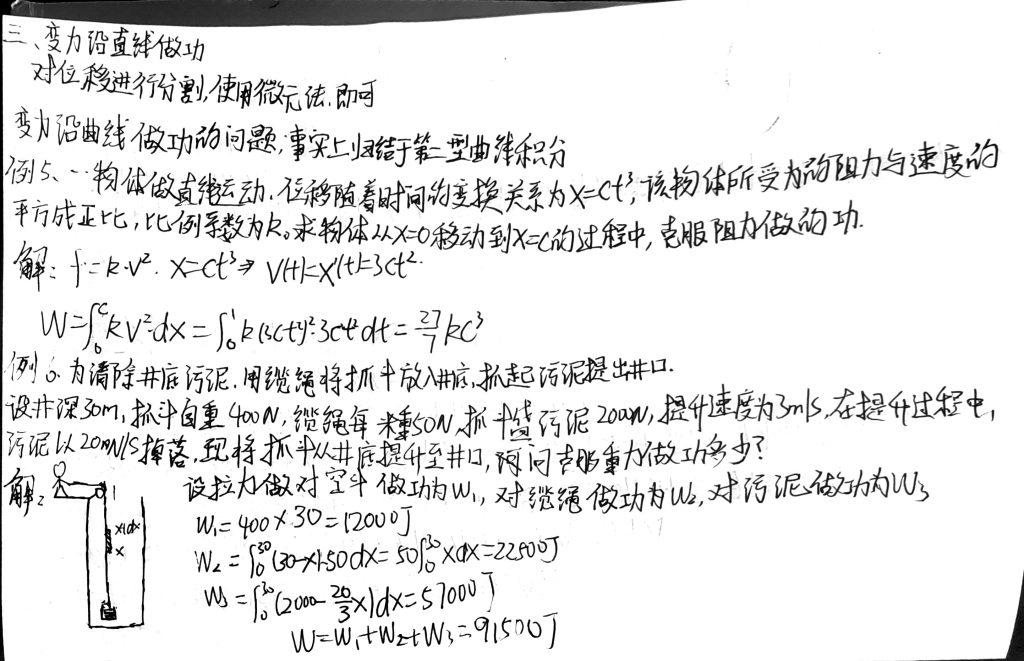 三、变力沿直线做功
对位移进行分割,使用微元法.即可
变力沿曲线做功的问题,事实上归结于第二型曲线积分
例5、一物体做直线运动.位移随着时间的变换关系为x=ct³,该物体所受为的阻力与速度的
平方成正比,比例系数为k。求物体从x=0移动到x=c的过程中,克服阻力做的功.
解:f=k·v². x=ct³⇒ V(t)=x'(t)=3ct².
W=∫₀ᶜkv²·dx=∫₀¹k(3ct²)²·3ct²dt=27/7 kc³
例6.为清除井底污泥.用缆绳将抓斗放入井底,抓起污泥提出井口.
设井深30m,抓斗自重400N,缆绳每米重50N,抓斗装污泥2000N,提升速度为3m/s,在提升过程中,
污泥以20N/s掉落,现将抓斗从井底提升至井口,问克服重力做功多少?
解: 设拉力做对空斗做功为W₁,对缆绳做功为W₂,对污泥做功为W₃
W₁=400×30=12000J
x+dx
x
W₂=∫₀³⁰(30-x)·50dx=50∫₀³⁰xdx=22500J
W₃=∫₀³⁰(2000-20/3x)dx=57000J
W=W₁+W₂+W₃=91500J